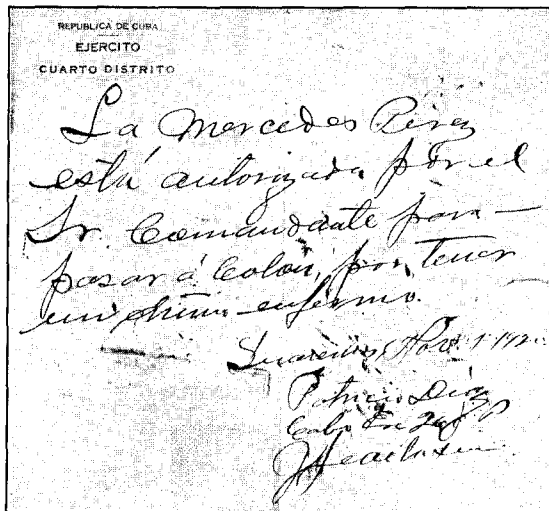 REPUBLICA DE CUBA
EJERCITO
CUARTO DISTRITO
La Mercedes Perez
está autorizada por el
Sr. Comandante para
pasar á Colón, por tener
un enfermo.
Nov. 1
Patricio Díaz
Cabo